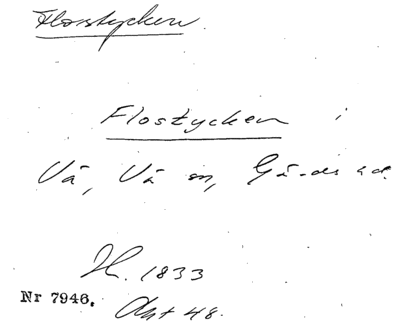 Flostycken.
Flostycken i
Vä, Vä sn, Gärds hd.
H. 1833
Nr 7946.
Akt 48.